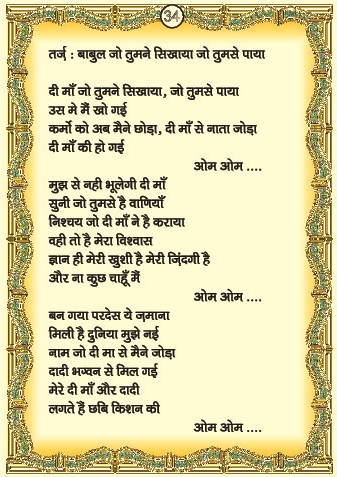 34
तर्ज़ : बाबुल जो तुमने सिखाया जो तुमसे पाया
दी माँ जो तुमने सिखाया, जो तुमसे पाया
उस मे मैं खो गई
कर्मो को अब मैने छोड़ा, दी माँ से नाता जोड़ा
दी माँ की हो गई
ओम ओम ....
मुझ से नही भूलेगी दी माँ
सुनी जो तुमसे है वाणियाँ
निश्चय जो दी माँ ने है कराया
वही तो है मेरा विश्वास
ज्ञान ही मेरी खुशी है मेरी ज़िंदगी है
और ना कुछ चाहूँ मैं
ओम ओम ....
बन गया परदेस ये ज़माना
मिली है दुनिया मुझे नई
नाम जो दी मा से मैने जोड़ा
दादी भग्वन से मिल गई
मेरे दी माँ और दादी
लगते हैं छबि किशन की
ओम ओम ....